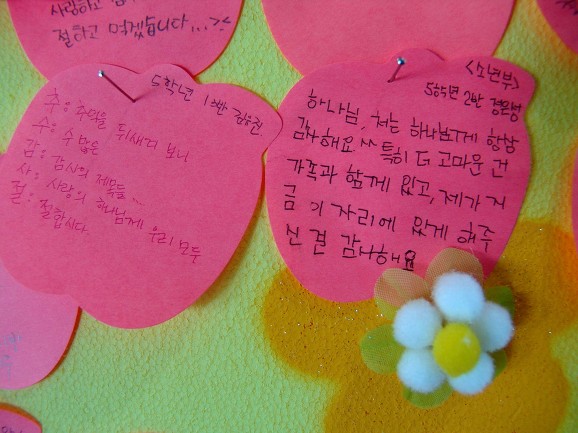 사랑하고
절하고 먹겠습니다...^^
5학년 1반 김유진
추: 추억을 뒤새겨 보니
수: 수많은
감: 감사의 제목들...
사: 사랑의 하나님께 우리 모두
절: 절합시다
<소년부>
5학년 2반 정은성
하나님, 저는 하나님께 항상
감사해요 ^^ 특히 더 고마운 건
가족과 함께 있고, 제가 지
금 이 자리에 있게 해주
신 걸 감사해요